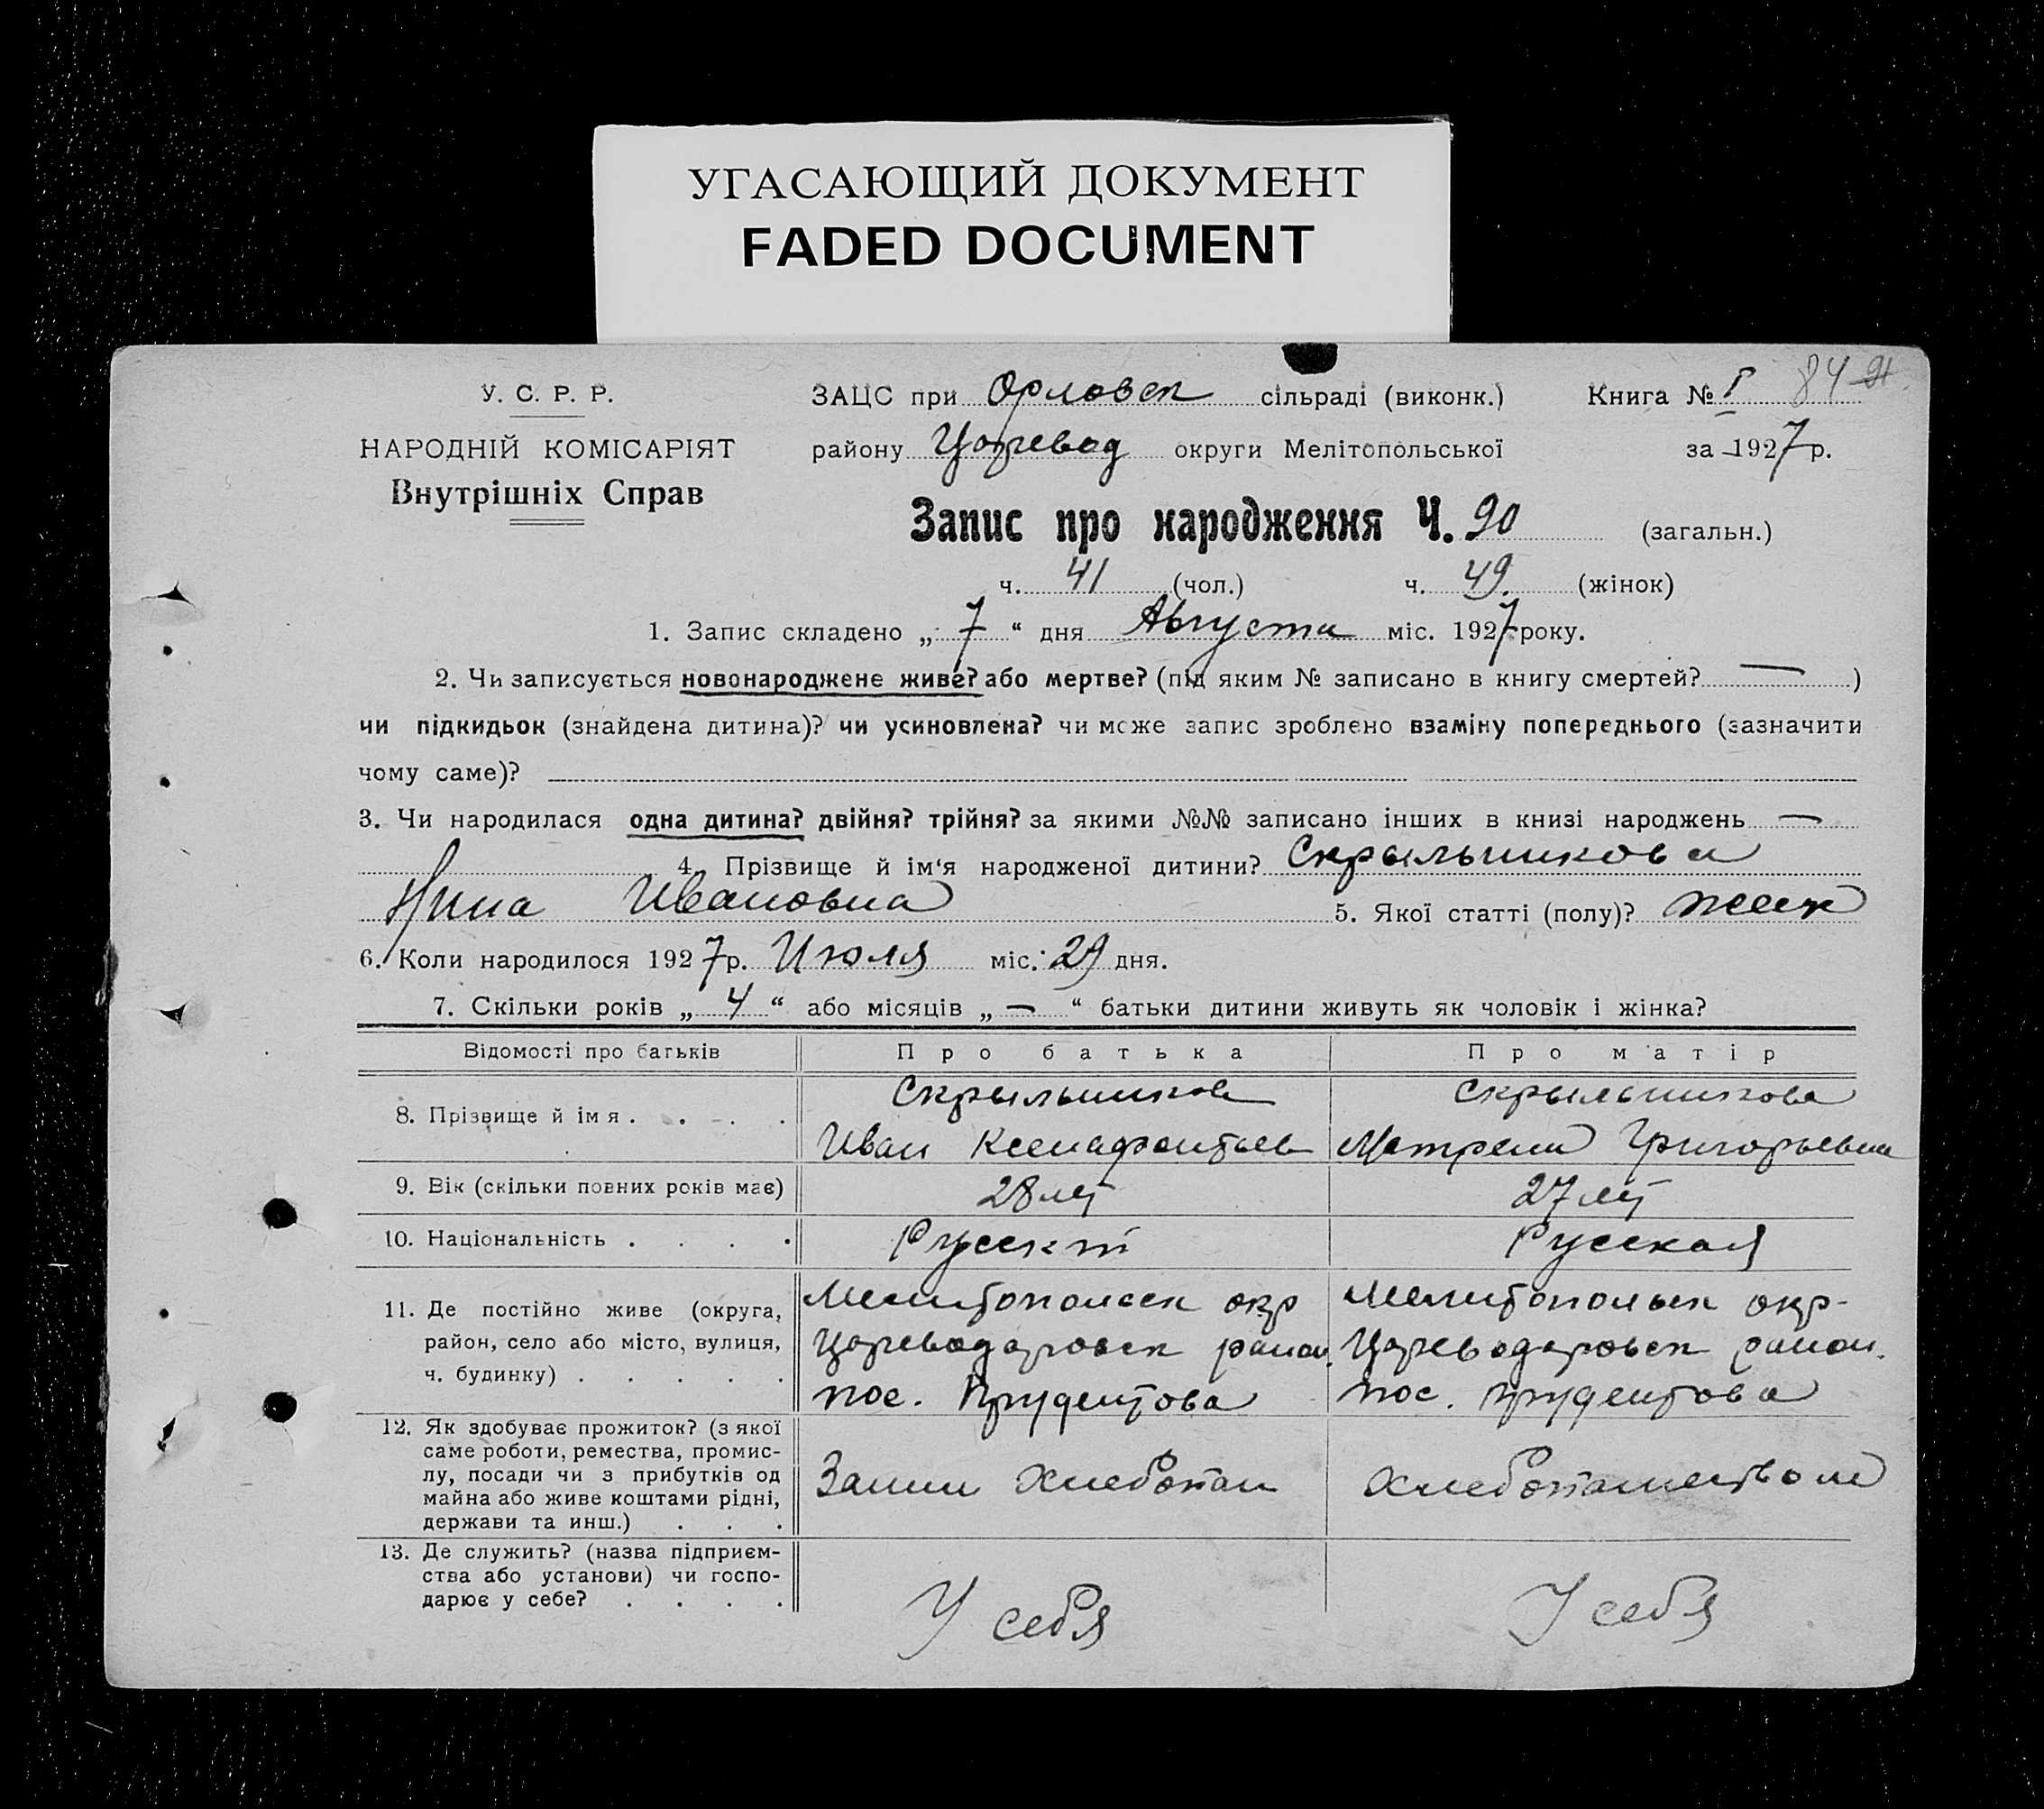 УГАСАЮЩИЙ ДОКУМЕНТ
FADED DOCUMENT
У. С. Р. Р.
НАРОДНІЙ КОМІСАРІЯТ
Внутрішніх Справ
ЗАЦС при Орловск сільраді (виконк.) Книга № I 84
району Царевод округи Мелітопольської за 1927 р.
Запис про народження Ч. 90 (загальн.)
ч. 41 (чол.) ч. 49. (жінок)
1. Запис складено „ 7 “ дня Августа міс. 1927 року.
2. Чи записується новонароджене живе? або мертве? (під яким № записано в книгу смертей? — )
чи підкидьок (знайдена дитина)? чи усиновлена? чи може запис зроблено взаміну попереднього (зазначити
чому саме)?
3. Чи народилася одна дитина? двійня? трійня? за якими №№ записано інших в книзі народжень —
4. Прізвище й ім‘я народженої дитини? Скрыльникова
Нина Ивановна 5. Якої статті (полу)? женск
6. Коли народилося 1927 р. Июля міс. 29 дня.
7. Скільки років „ 4 “ або місяців „ — “ батьки дитини живуть як чоловік і жінка?
Відомості про батьків Про батька Про матір
8. Прізвище й ім я . . . . Скрыльников Скрыльникова
Иван Ксенафонтьев Матрена Григорьевна
9. Вік (скільки повних років має) 28 лет 27 лет
10. Національність . . . . Русский Русская
11. Де постійно живе (округа, район, село або місто, вулиця, ч. будинку) . . . . .
Мелитопольск окр Мелитопольск окр-
Цареводаровск район. Цареводаровск район.
пос. Прудентова пос. Прудентова
12. Як здобуває прожиток? (з якої
саме роботи, ремества, промис-
лу, посади чи з прибутків од
майна або живе коштами рідні,
держави та инш.) . . .
Заним Хлебопаш Хлебопашеством
13. Де служить? (назва підприєм-
ства або установи) чи госпо-
дарює у себе? . . . .
У себя У себя